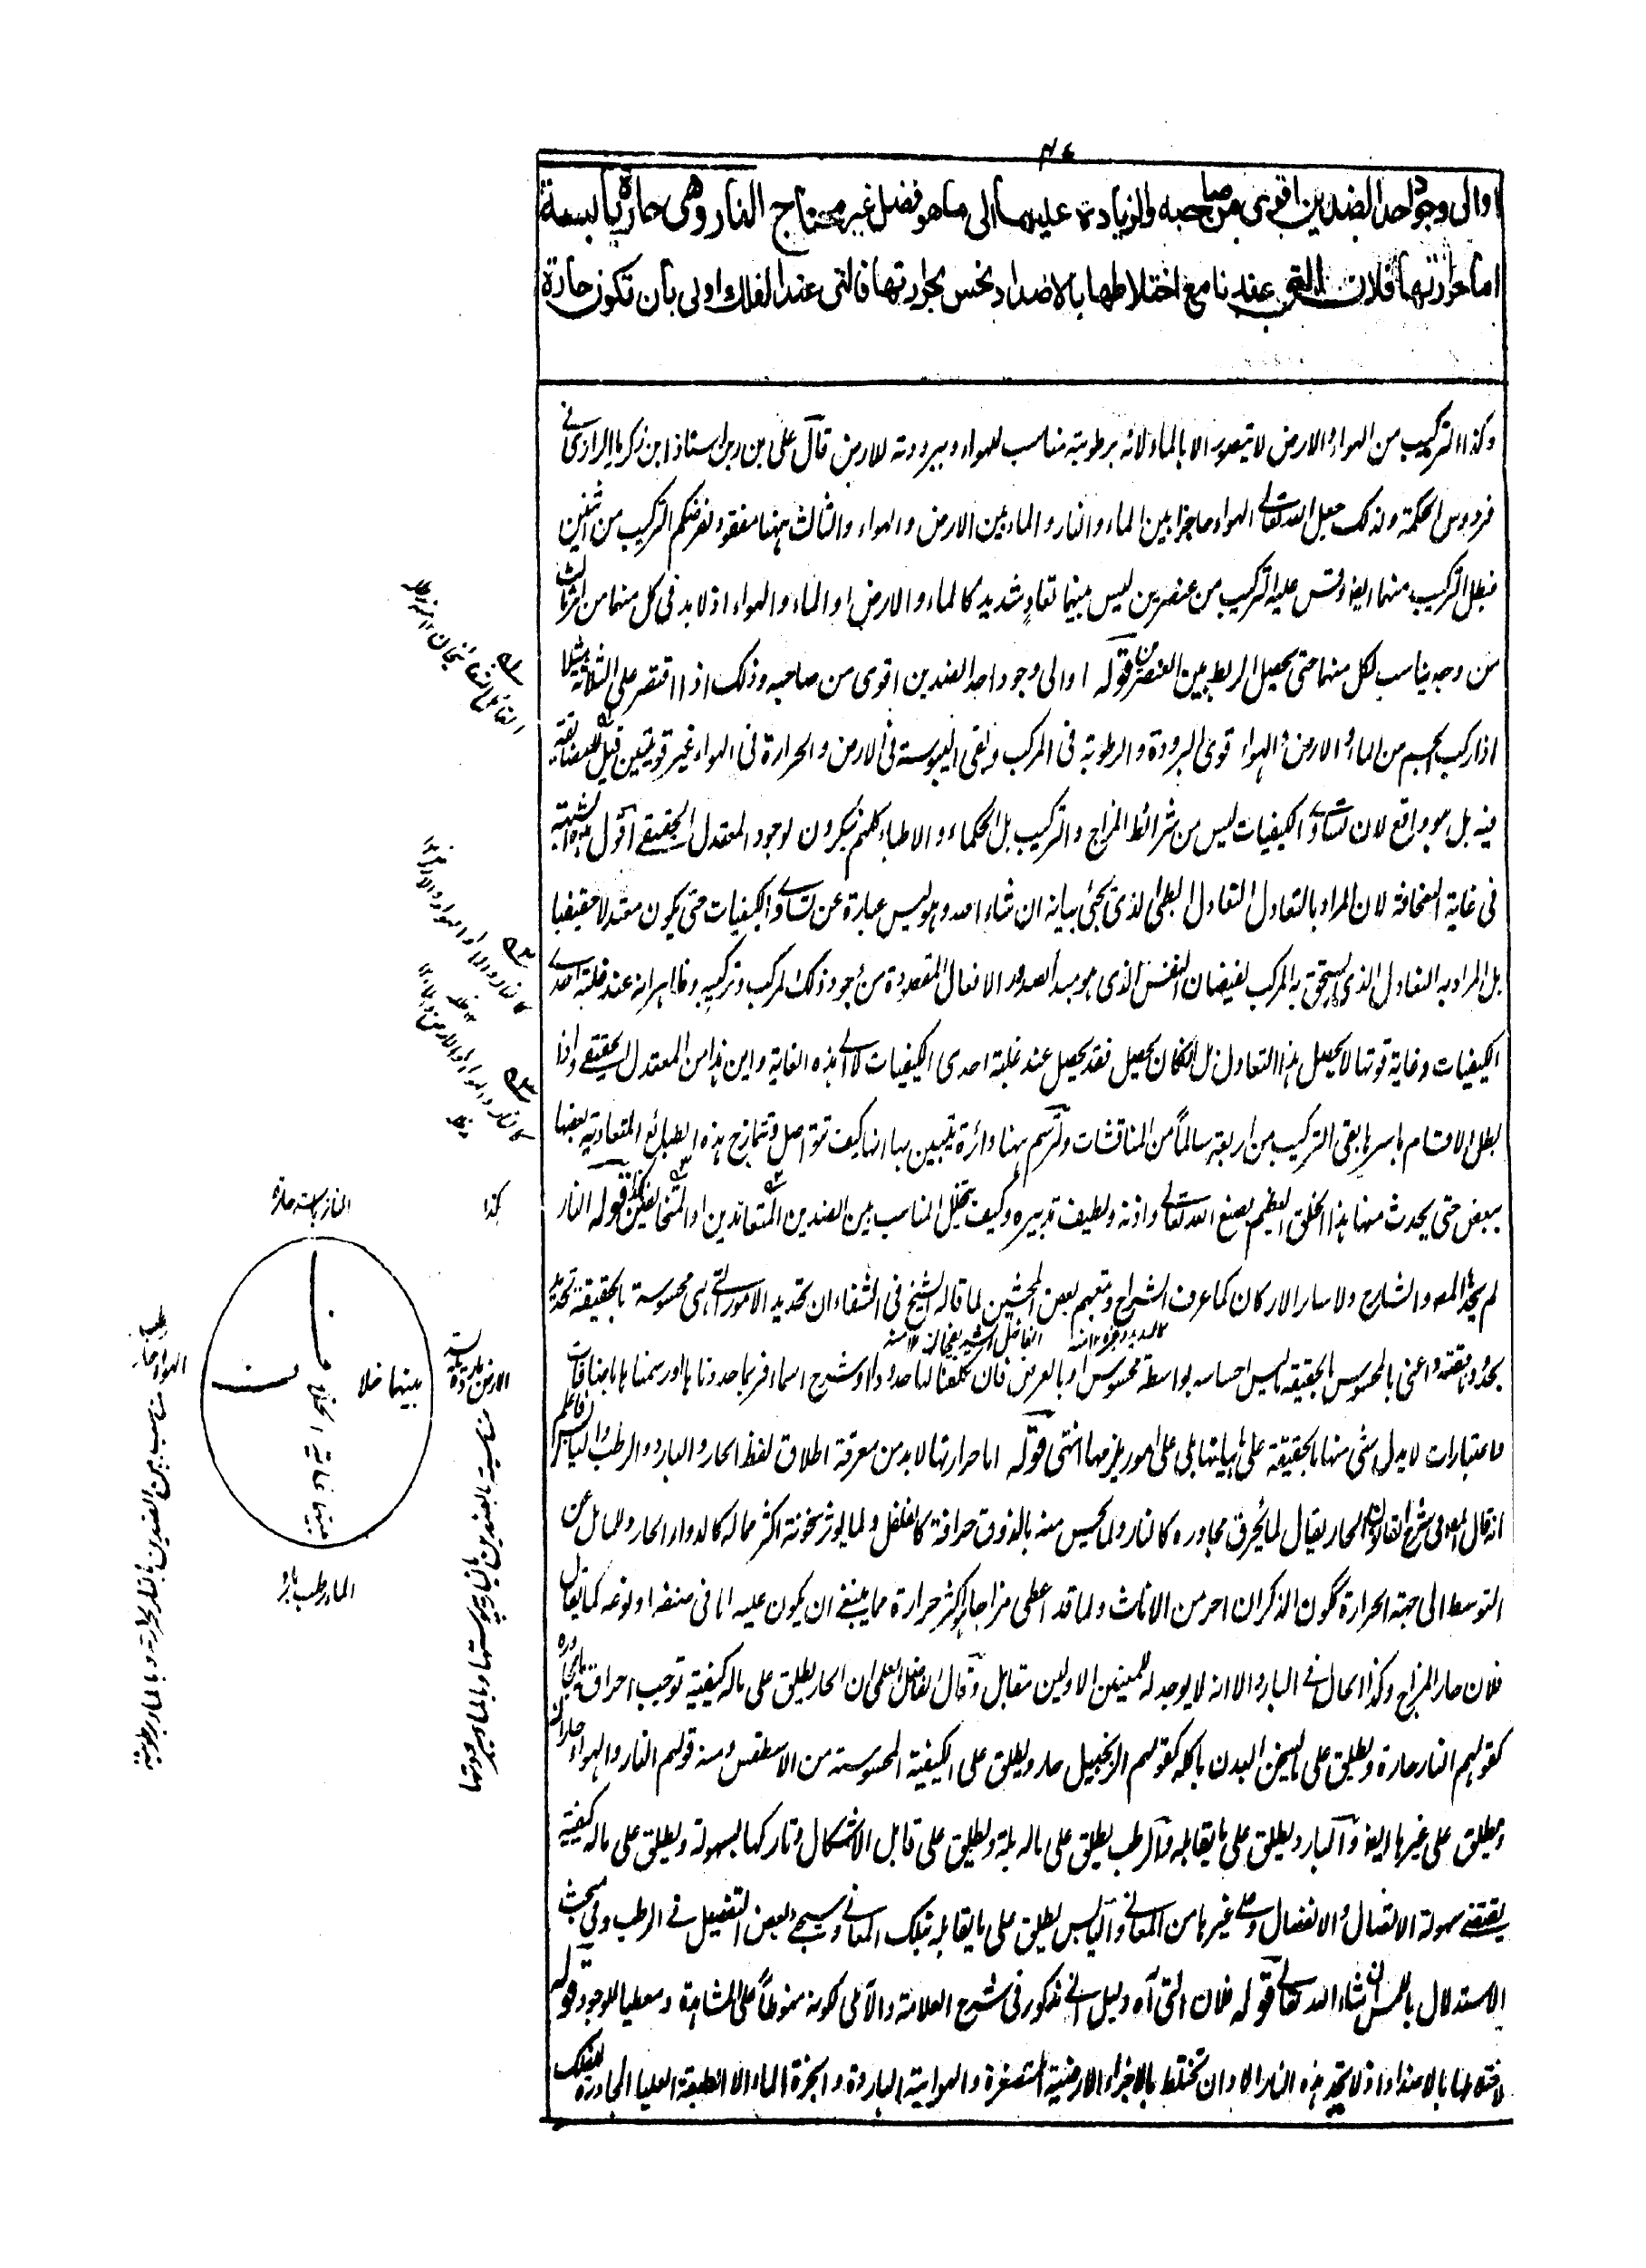 ٤٦
اوالى وجود احد الضدين اقوى من صاحبه والزيادة عليها الى ما هو فضل غير محتاج النار وهى حارة يابسة
اما حرارتها فلان التى عندنا مع اختلاطها بالاضداد نحس بحرارتها فالتى عند الفلك اولى بان تكون حارة
وكذا التركيب من الهواء والارض لا يتصور الا بالماء لانه برطوبته مناسب للهواء وببرودته للارض قال على بن ربن استاذ ابن زكريا الرازى فى
فردوس الحكمة ولذلك جعل الله تعالى الهواء حاجزا بين الماء والنار والماء بين الارض والهواء والثالث ههنا مفقود لفرضكم التركيب من اثنين
فبطل التركيب منهما ايضا وقس عليه التركيب من عنصرين ليس بينهما تعاد شديد كالماء والارض او الماء والهواء اذ لا بد فى كل منهما من الثالث
من وجه يناسب لكل منهما حتى يحصل الربط بين العنصرين قوله اوالى وجود احد الضدين اقوى من صاحبه وذلك اذا اقتصر على الثلاثة مثلا
اذا ركب الجسم من الماء والارض والهواء قوى البرودة والرطوبة فى المركب وبقى اليبوسة فى الارض والحرارة فى الهواء غير قويتين قيل لا مضايقة
فيه بل هو واقع لان تساوى الكيفيات ليس من شرائط المزاج والتركيب بل الحكماء والاطباء كلهم ينكرون لوجود المعتدل الحقيقى اقول هذه الشبهة
فى غاية السخافة لان المراد بالتعادل التعادل الطبى الذى يجئ بيانه ان شاء الله وهو ليس عبارة عن تساوى الكيفيات حتى يكون معتدلا حقيقيا
بل المراد به التعادل الذى يستحق به المركب لفيضان النفس الذى هو مبدأ لصدور الافعال المقصودة من وجود ذلك المركب وتركيبه وظاهر انه عند غلبة احدى
الكيفيات وغاية قوتها لا يحصل هذا التعادل بل ان كان يحصل فقد يحصل عند غلبة احدى الكيفيات لا الى هذه الغاية واين هذا من المعتدل الحقيقى واذا
بطل الاقسام باسرها بقى التركيب من اربعة سالماً من المناقشات ولنرسم ههنا دائرة يتبين بها انها كيف تتواصل وتتمازج هذه الطبائع المتعادية بعضها
ببعض حتى يحدث منها هذا الخلق العظيم بصنع الله تعالى واذنه ولطيف تدبيره وكيف يتخلل المناسب بين الضدين المتعاندين او المتخالفين هكذا قوله النار
لم يحدها المص والشارح ولا سائر الاركان كما عرف الشراح ومنهم بعض المحشين لما قاله الشيخ فى الشفاء ان تحديد الامور التى هى محسوسة بالحقيقة تحديد
بحدود ناقصة واعنى بالمحسوس بالحقيقة ما ليس احساسه بواسطة محسوس او بالعرض فان تكلفنا لها حدودا او شرح اسماء فربما حددناها او رسمناها باضافات
واعتبارات لا يدل شئ منها بالحقيقة على ماهياتها بل على امور يلزمها انتهى قوله اما حرارتها لا بد من معرفة اطلاق لفظ الحار والبارد والرطب واليابس فاعلم
انه قال المص فى شرح القانون الحار يقال لما يحرق مجاوره كالنار ولما يحس منه بالذوق حرافة كالفلفل ولما يؤثر سخونة اكثر مما له كالدواء الحار وللمائل عن
التوسط الى جهة الحرارة ككون الذكران احر من الاناث ولما قد اعطى مزاجا اكثر حرارة مما ينبغى ان يكون عليه اما فى صنفه او نوعه كما يقال
فلان حار المزاج وكذا الحال فى البارد الا انه لا يوجد له للمعنيين الاولين مقابل وقال الفاضل العلمى ان الحار يطلق على ما له كيفية توجب احراق ما يجاوره
كقولهم النار حارة ويطلق على ما يسخن البدن باكله كقولهم الزنجبيل حار ويطلق على الكيفية المحسوسة من الاسطقس ومنه قولهم النار والهواء حاران
ويطلق على غيرها ايضا والبارد يطلق على ما يقابله والرطب يطلق على ما له بلة ويطلق على قابل الاشكال وتاركها بسهولة ويطلق على ما له كيفية
يقتضى سهولة الاتصال والانفصال وعلى غيرها من المعانى واليابس يطلق على ما يقابله بتلك المعانى وسيجئ بعض التفصيل فى الرطب وفى مبحث
الاستدلال باللمس ان شاء الله تعالى قوله فلان التى آه دليل انى مذكور فى شرح العلامة والآملى لكونه منوطاً على المشاهدة ومعطيا للوجود قوله
لاختلاطها بالاضداد اذ لا تجد هذه النار الا وان تختلط بالاجزاء الارضية المتصغرة والهوائية الباردة وابخرة الماء الا الطبقة العليا المجاورة للفلك
هكذا
النار يابسة حارة
الارض باردة يابسة
مناسبة بالضدين بالنار بيوستها وبالماء ببرودتها
بينهما خلا
الماء رطب بارد
الهواء حار رطب
مناسب بين الضدين بالنار بحرارته وبالماء برطوبته